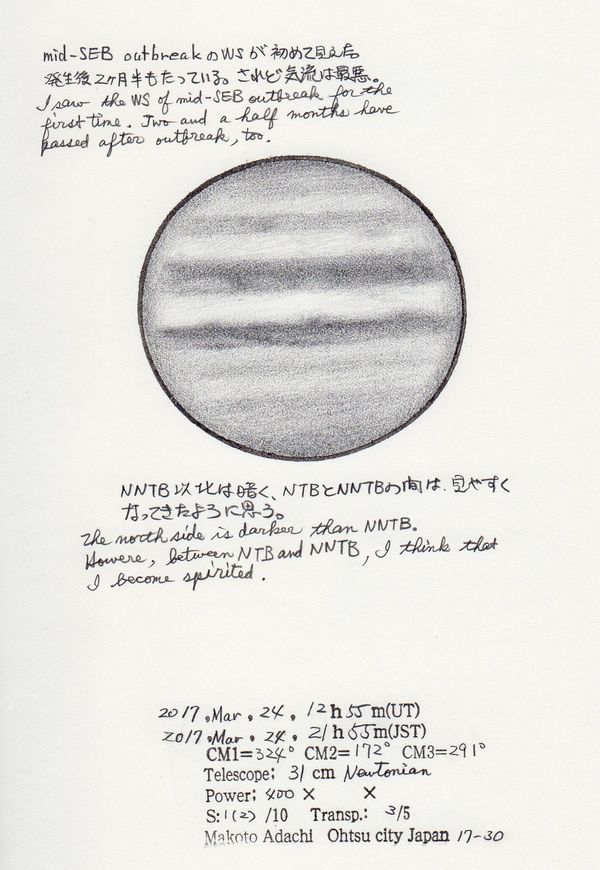 mid-SEB outbreakのWSが初めて見えた。
発生後2ヶ月半もたっている。されど気流は最悪。
I saw the WS of mid-SEB outbreak for the
first time. Two and a half months have
passed after outbreak, too.
NNTB以北は暗く、NTBとNNTBの間は、見やすく
なってきたように思う。
The north side is darker than NNTB.
Howere, between NTB and NNTB, I think that
I become spirited.
2017.Mar. 24. 12h55m(UT)
2017.Mar. 24. 21h55m(JST)
CM1=324° CM2=172° CM3=291°
Telescope; 31 cm Newtonian
Power; 400 × ×
S:1(2) /10 Transp.: 3/5
Makoto Adachi Ohtsu city Japan 17-30